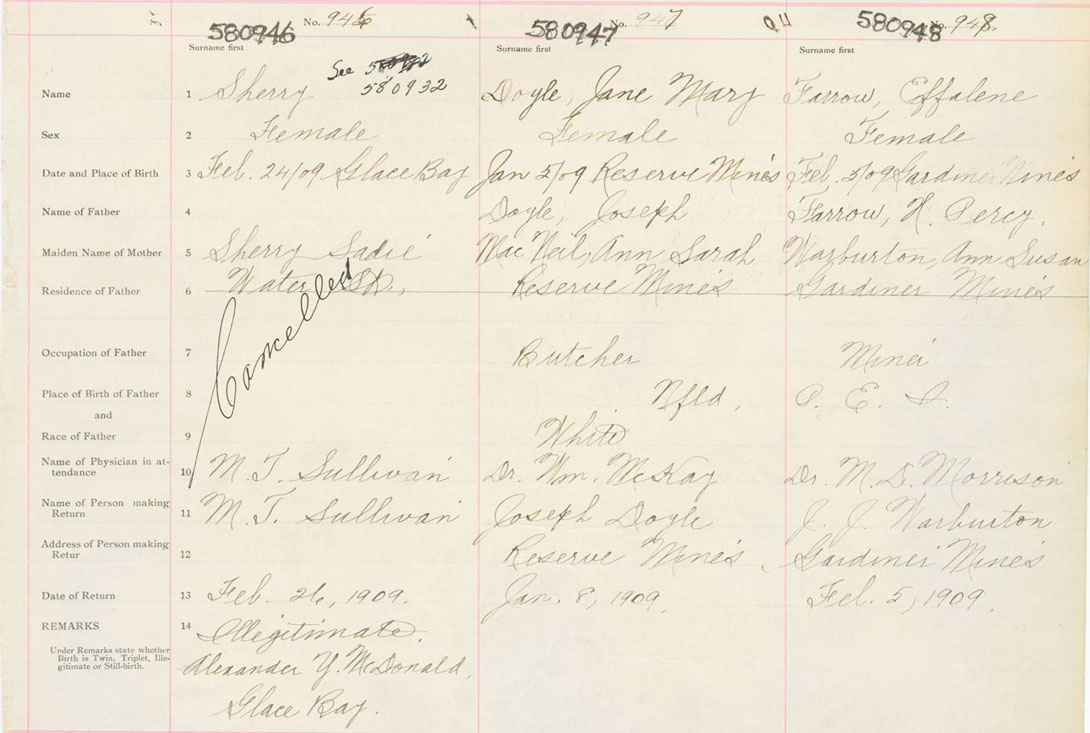 No. 946 No. 947 No. 948
580946 580947 580948
Surname first Surname first Surname first
See
580932
Name 1 Sherry Doyle, Jane Mary Farrow, Effalene
Sex 2 Female Female Female
Date and Place of Birth 3 Feb. 24/09 Glace Bay Jan 5/09 Reserve Mines Feb. 3/09 Gardiner Mines
Name of Father 4 Doyle, Joseph Farrow, H. Percy.
Maiden Name of Mother 5 Sherry Sadie Mac Neil, Ann Sarah Warburton, Ann Susan
Residence of Father 6 Water St., Reserve Mines Gardiner Mines
Cancelled
Occupation of Father 7 Butcher Miner
Place of Birth of Father 8 Nfld, P. E. I.
and
Race of Father 9 White
Name of Physician in at-
tendance 10 M. T. Sullivan Dr. Wm. McKay Dr. M. D. Morrison
Name of Person making
Return 11 M. T. Sullivan Joseph Doyle J. J. Warburton
Address of Person making
Retur 12 Reserve Mines Gardiner Mines
Date of Return 13 Feb. 26, 1909. Jan. 8, 1909. Feb. 5, 1909.
REMARKS 14 Illegitimate.
Under Remarks state whether
Birth is Twin, Triplet, Ille-
gitimate or Still-birth.
Alexander Y. McDonald,
Glace Bay.